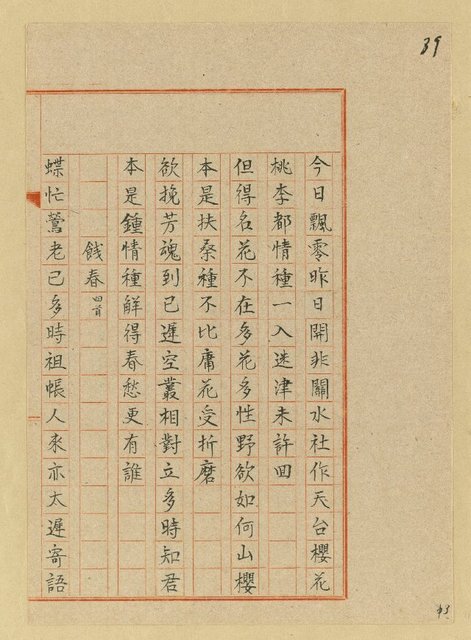 39
今日飄零昨日開非關水社作天台櫻花
桃李都情種一入迷津未許回
但得名花不在多花多性野欲如何山櫻
本是扶桑種不比庸花受折磨
欲挽芳魂到已遲空叢相對立多時知君
本是鍾情種解得春愁更有誰
餞春 四首
蝶忙鶯老已多時祖帳人來亦太遲寄語